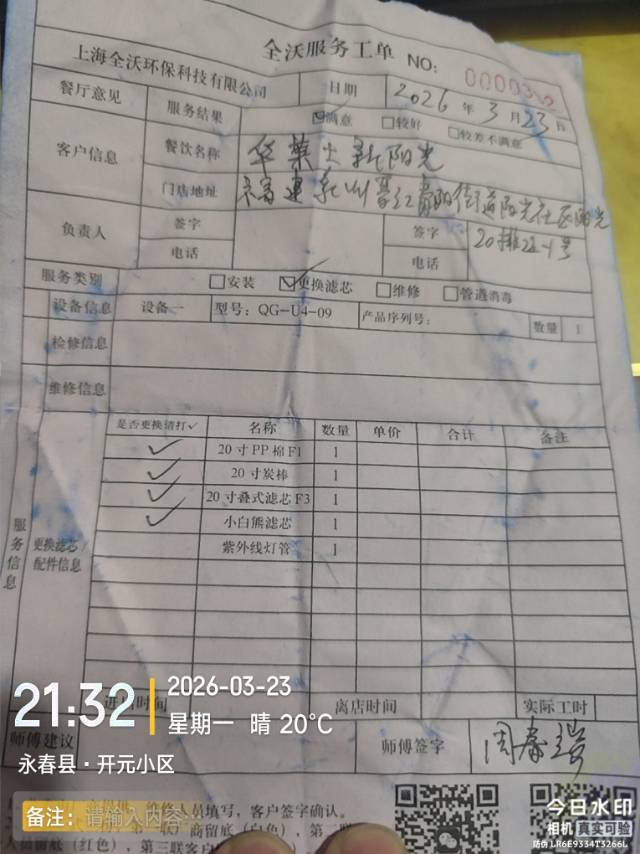 全沃服务工单 NO:
上海全沃环保科技有限公司 日期 2026年3月23日
餐厅意见 服务结果 ☑满意 □较好 □较差不满意
客户信息 餐饮名称 华莱士新阳光
门店地址 福建泉州晋江青阳街道阳光社区阳光
20排22-1号
负责人 签字 签字
电话 电话
服务类别 □安装 ☑更换滤芯 □维修 □管道消毒
设备信息 设备一 型号: QG-U4-09 产品序列号: 数量 1
检修信息
维修信息
是否更换请打✓ 名称 数量 单价 合计 备注
✓ 20寸PP棉F1 1
✓ 20寸炭棒 1
✓ 20寸叠式滤芯F3 1
✓ 小白熊滤芯 1
紫外线灯管 1
服务信息
更换滤芯/
配件信息
进店时间 离店时间 实际工时
师傅建议 师傅签字
21:32
2026-03-23
星期一 晴 20°C
永春县·开元小区
备注: 请输入内容...
人员填写,客户签字确认。
商留底(白色),第二联
留底(红色),第三联客户
今日水印
相机 真实可验
防伪 LR6E9334T3266L